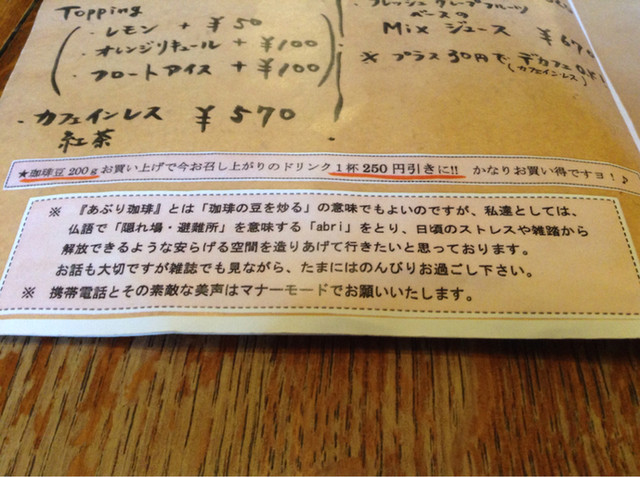 Topping
・レモン + ¥50
・オレンジリキュール + ¥100
・フロートアイス + ¥100
・カフェインレス ¥570
紅茶
フレッシュグレープフルーツ
ベースの
Mix ジュース ¥670
※ プラス30円で、デカフェOK
(カフェインレス)
★珈琲豆 200g お買い上げで今お召し上がりのドリンク1杯 250 円引きに!! かなりお買い得ですヨ!♪
※ 『あぶり珈琲』とは「珈琲の豆を炒る」の意味でもよいのですが、私達としては、
仏語で「隠れ場・避難所」を意味する「abri」をとり、日頃のストレスや雑踏から
解放できるような安らげる空間を造りあげて行きたいと思っております。
お話も大切ですが雑誌でも見ながら、たまにはのんびりお過ごし下さい。
※ 携帯電話とその素敵な美声はマナーモードでお願いいたします。